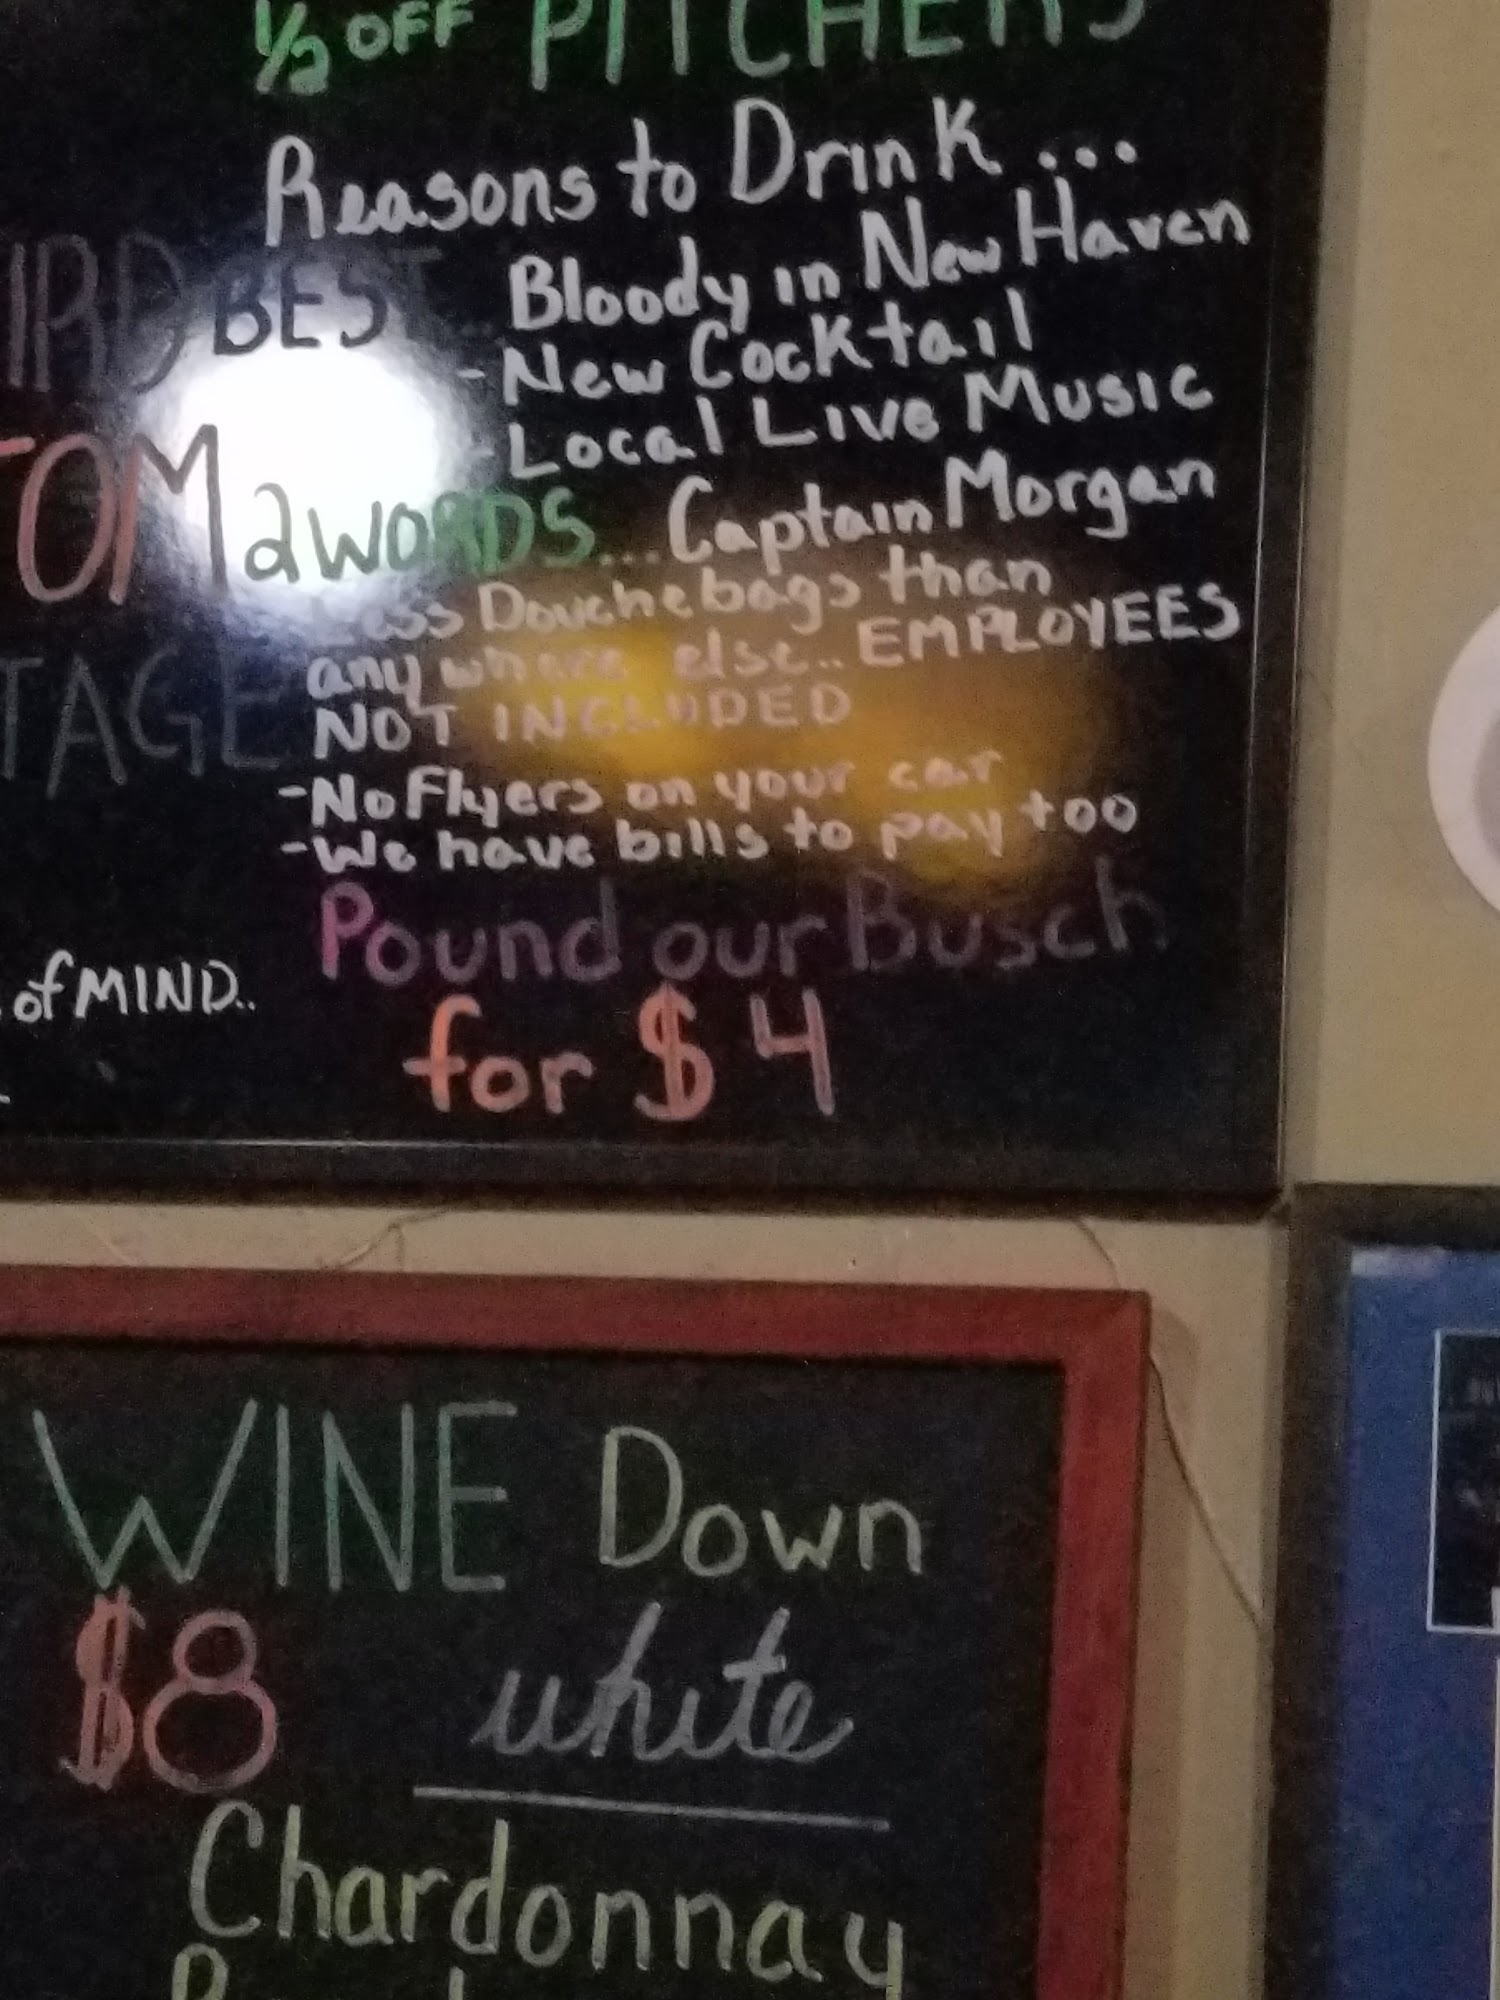 1/2 OFF PITCHERS
Reasons to Drink...
IRD BEST... Bloody in New Haven
- New Cocktail
- Local Live Music
TOM 2 WORDS... Captain Morgan
Less Douchebags than
anywhere else.. EMPLOYEES
TAGE NOT INCLUDED
- No Flyers on your car
- We have bills to pay too
Pound our Busch
of MIND..
for $4
WINE Down
$8 white
Chardonnay